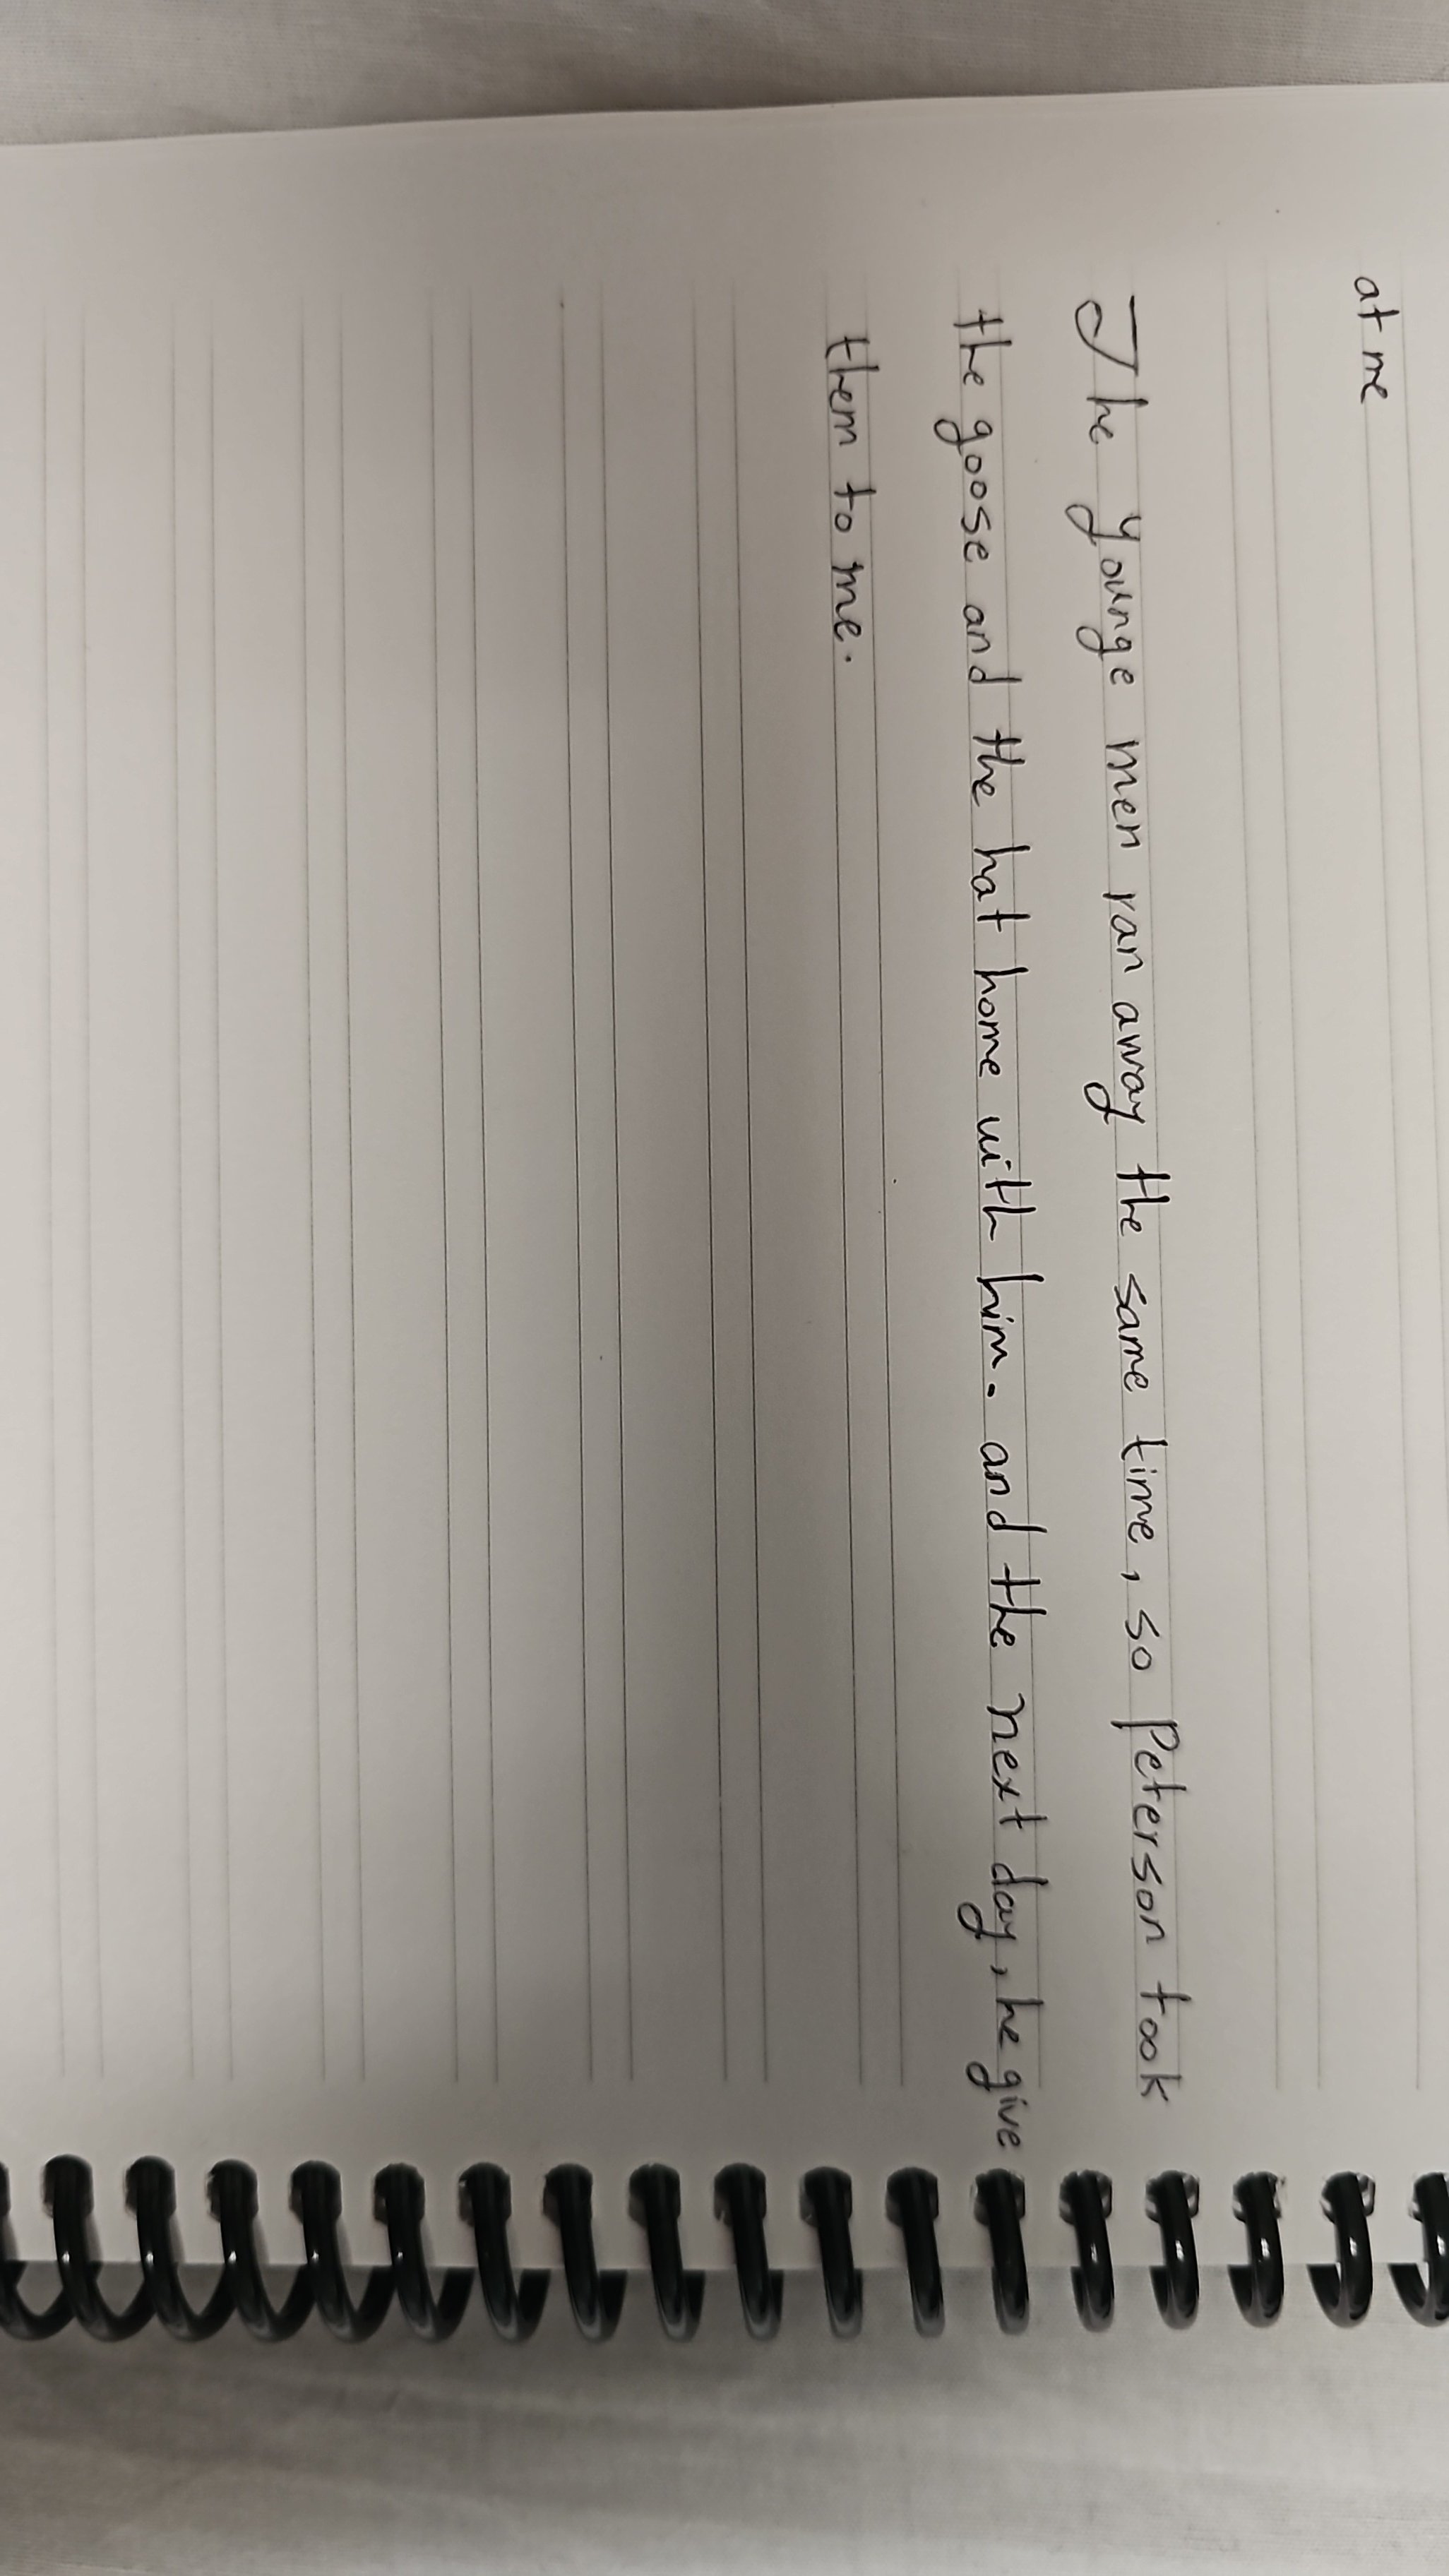 at me
The younge men ran away the same time, so Peterson took
the goose and the hat home with him. and the next day, he give
them to me.